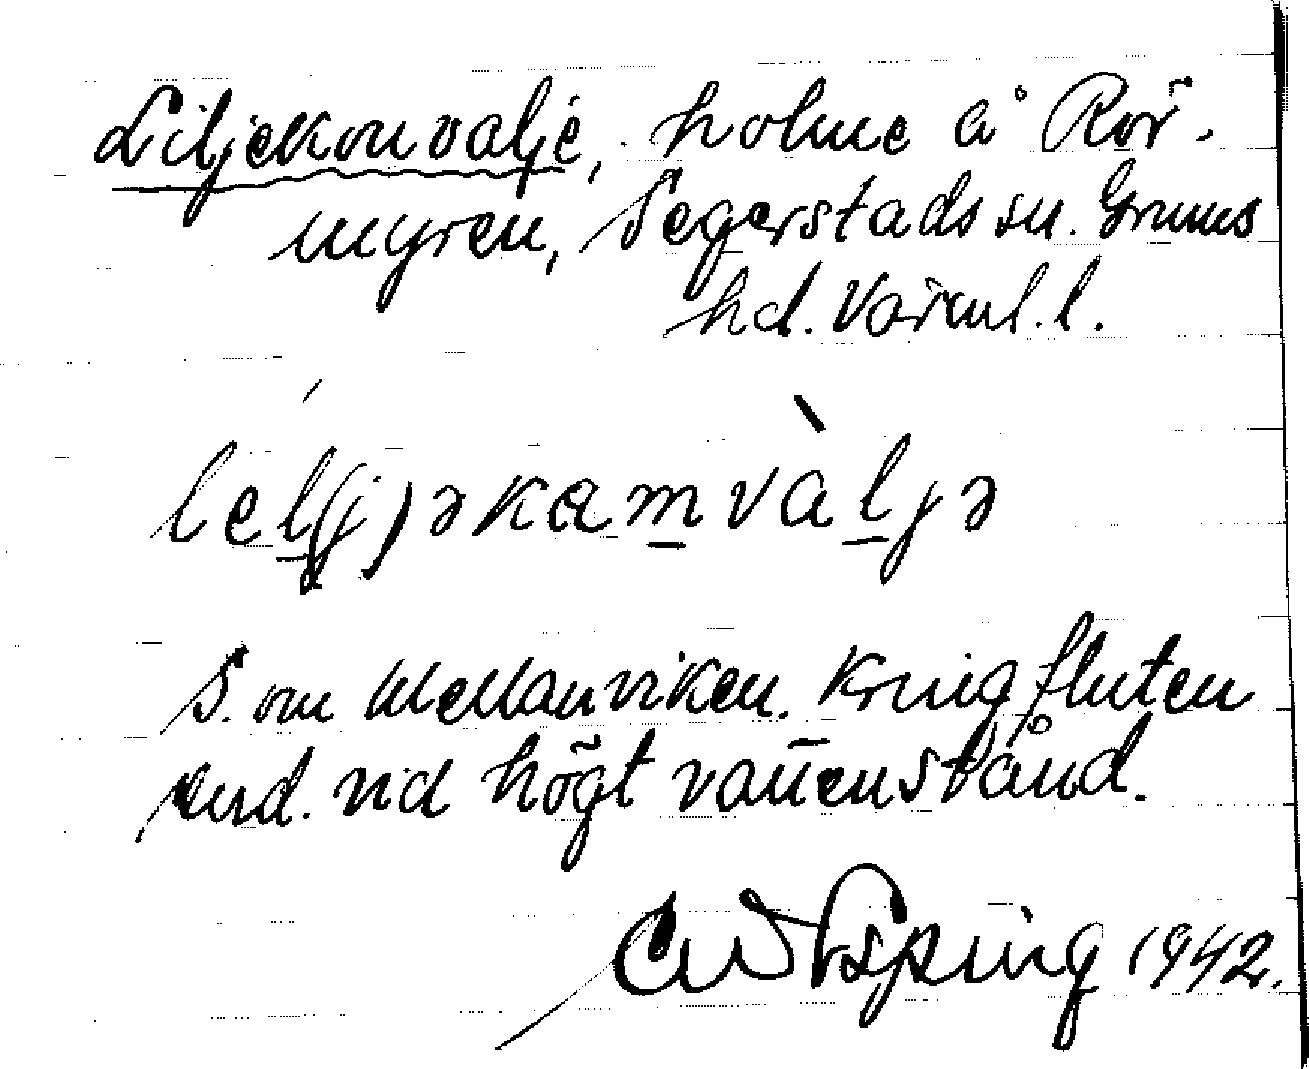 Liljekonvalje, holme å Rör-
myren, Segerstads sn. Grums
hd. Värml. l.
lel(j)əkamvàljə
S. om Mellanviken. Kringfluten
end. vid högt vattenstånd.
1942.